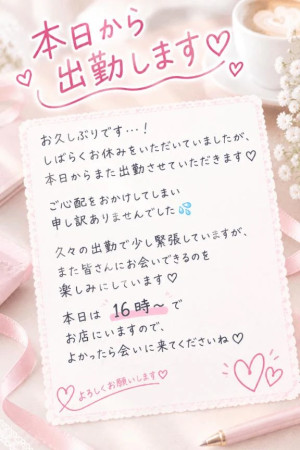 本日から
出勤します♡
お久しぶりです…!
しばらくお休みをいただいていましたが、
本日からまた出勤させていただきます♡
ご心配をおかけしてしまい
申し訳ありませんでした💦
久々の出勤で少し緊張していますが、
また皆さんにお会いできるのを
楽しみにしています♡
本日は 16時〜 で
お店にいますので、
よかったら会いに来てくださいね♡
よろしくお願いします♡